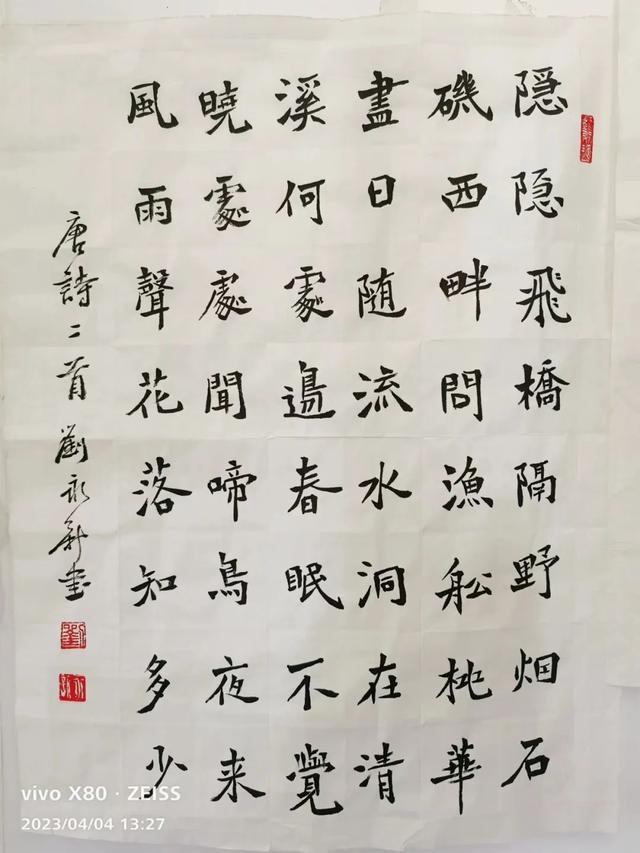 隐隐飛橋隔野烟石
磯西畔問漁舩桃華
盡日随流水洞在清
溪何處邉春眠不覺
曉處處聞啼鳥夜来
風雨聲花落知多少
唐詩二首劉永新書
vivo X80 · ZEISS
2023/04/04 13:27